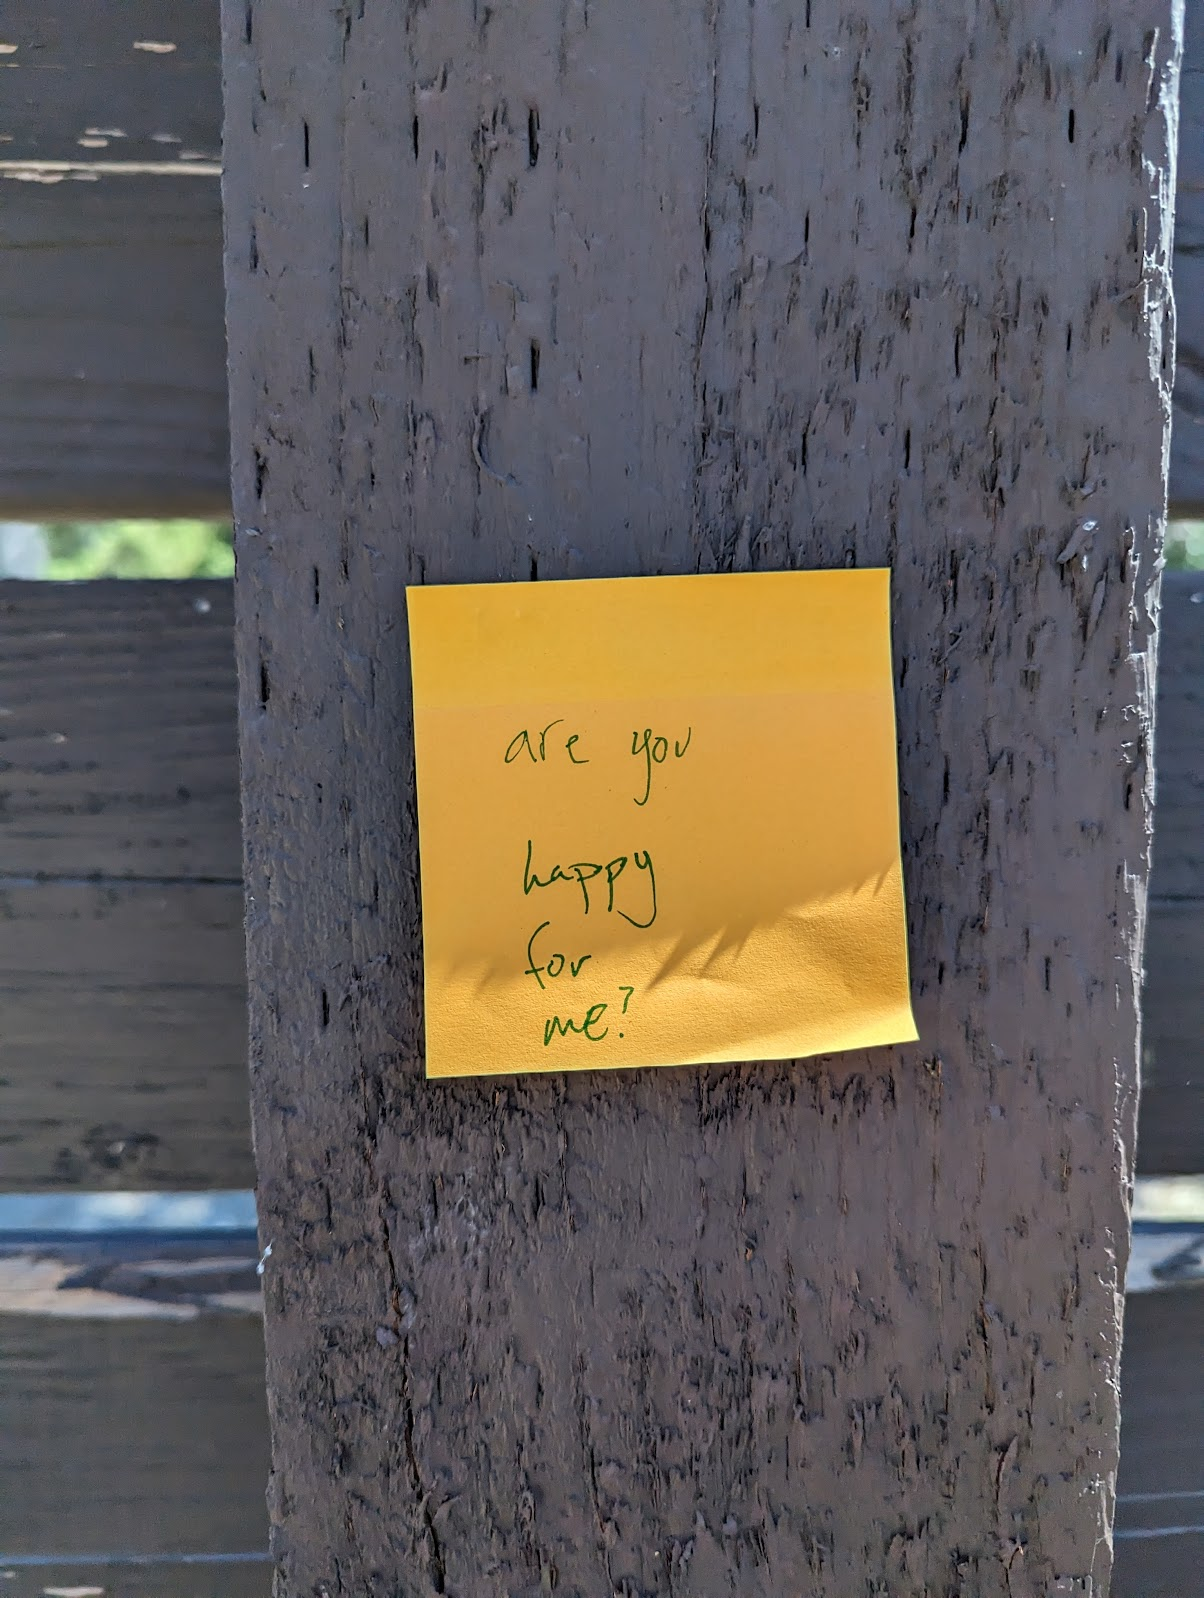 are you
happy
for
me?